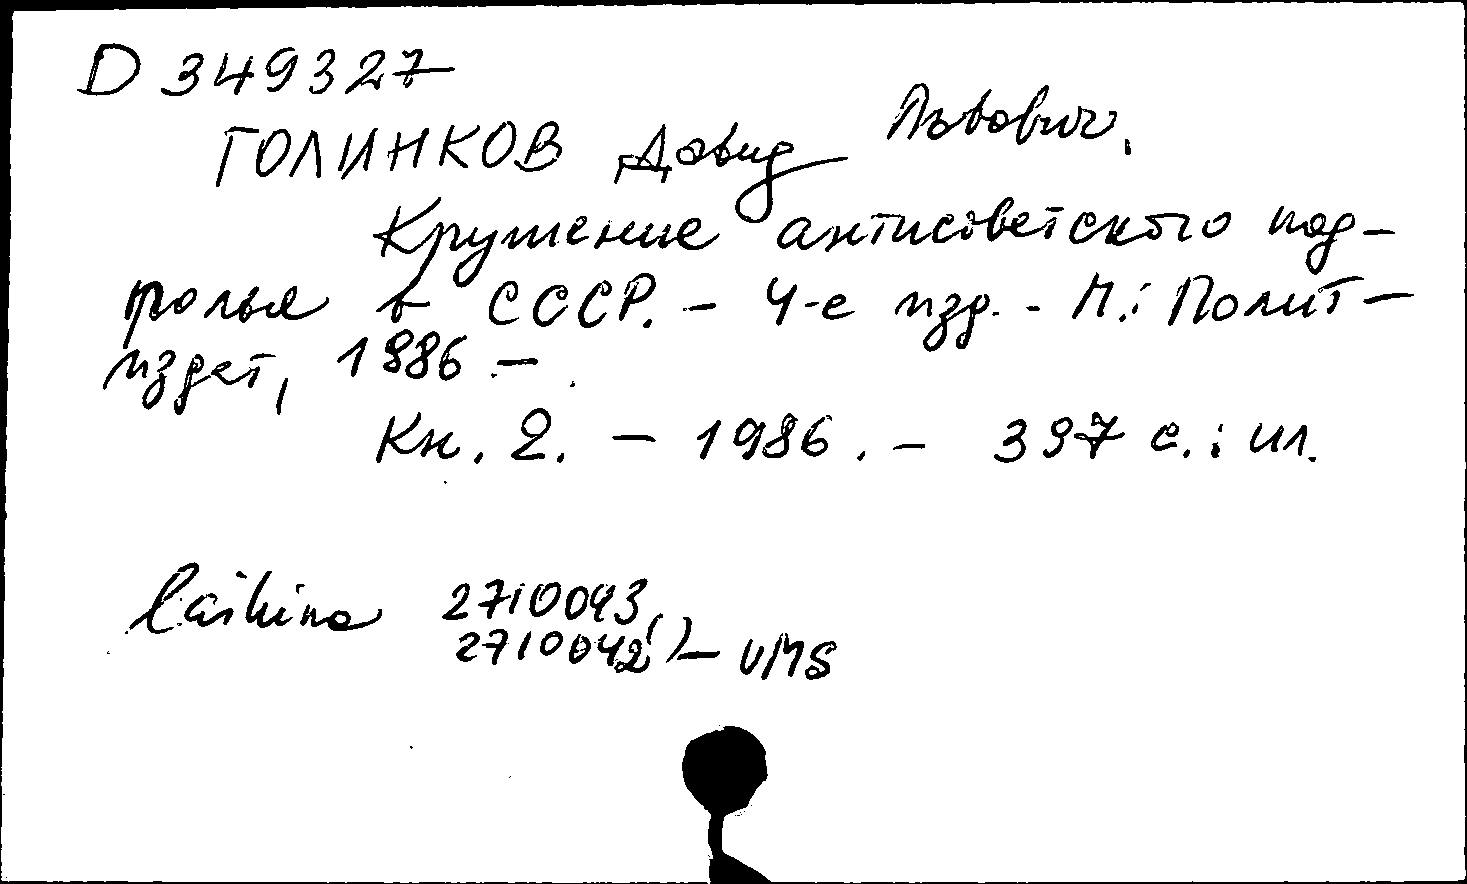 D 349327
ГОЛИНКОВ Давид Львович.
Крушение антисоветского под-
полья в СССР. – 4-е изд. - М.: Полит-
издат, 1986. –
Кн. 2. – 1986. – 397 с.: ил.
2710043,
2710042(,) – VMS